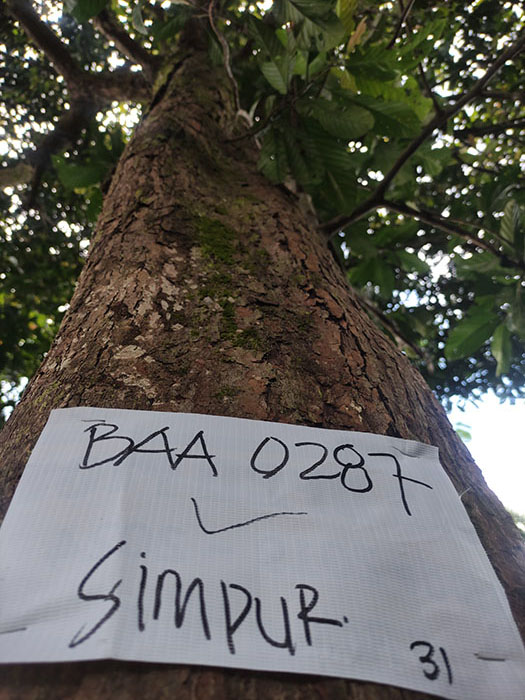 BAA 0287
✓
SIMPUR.
31